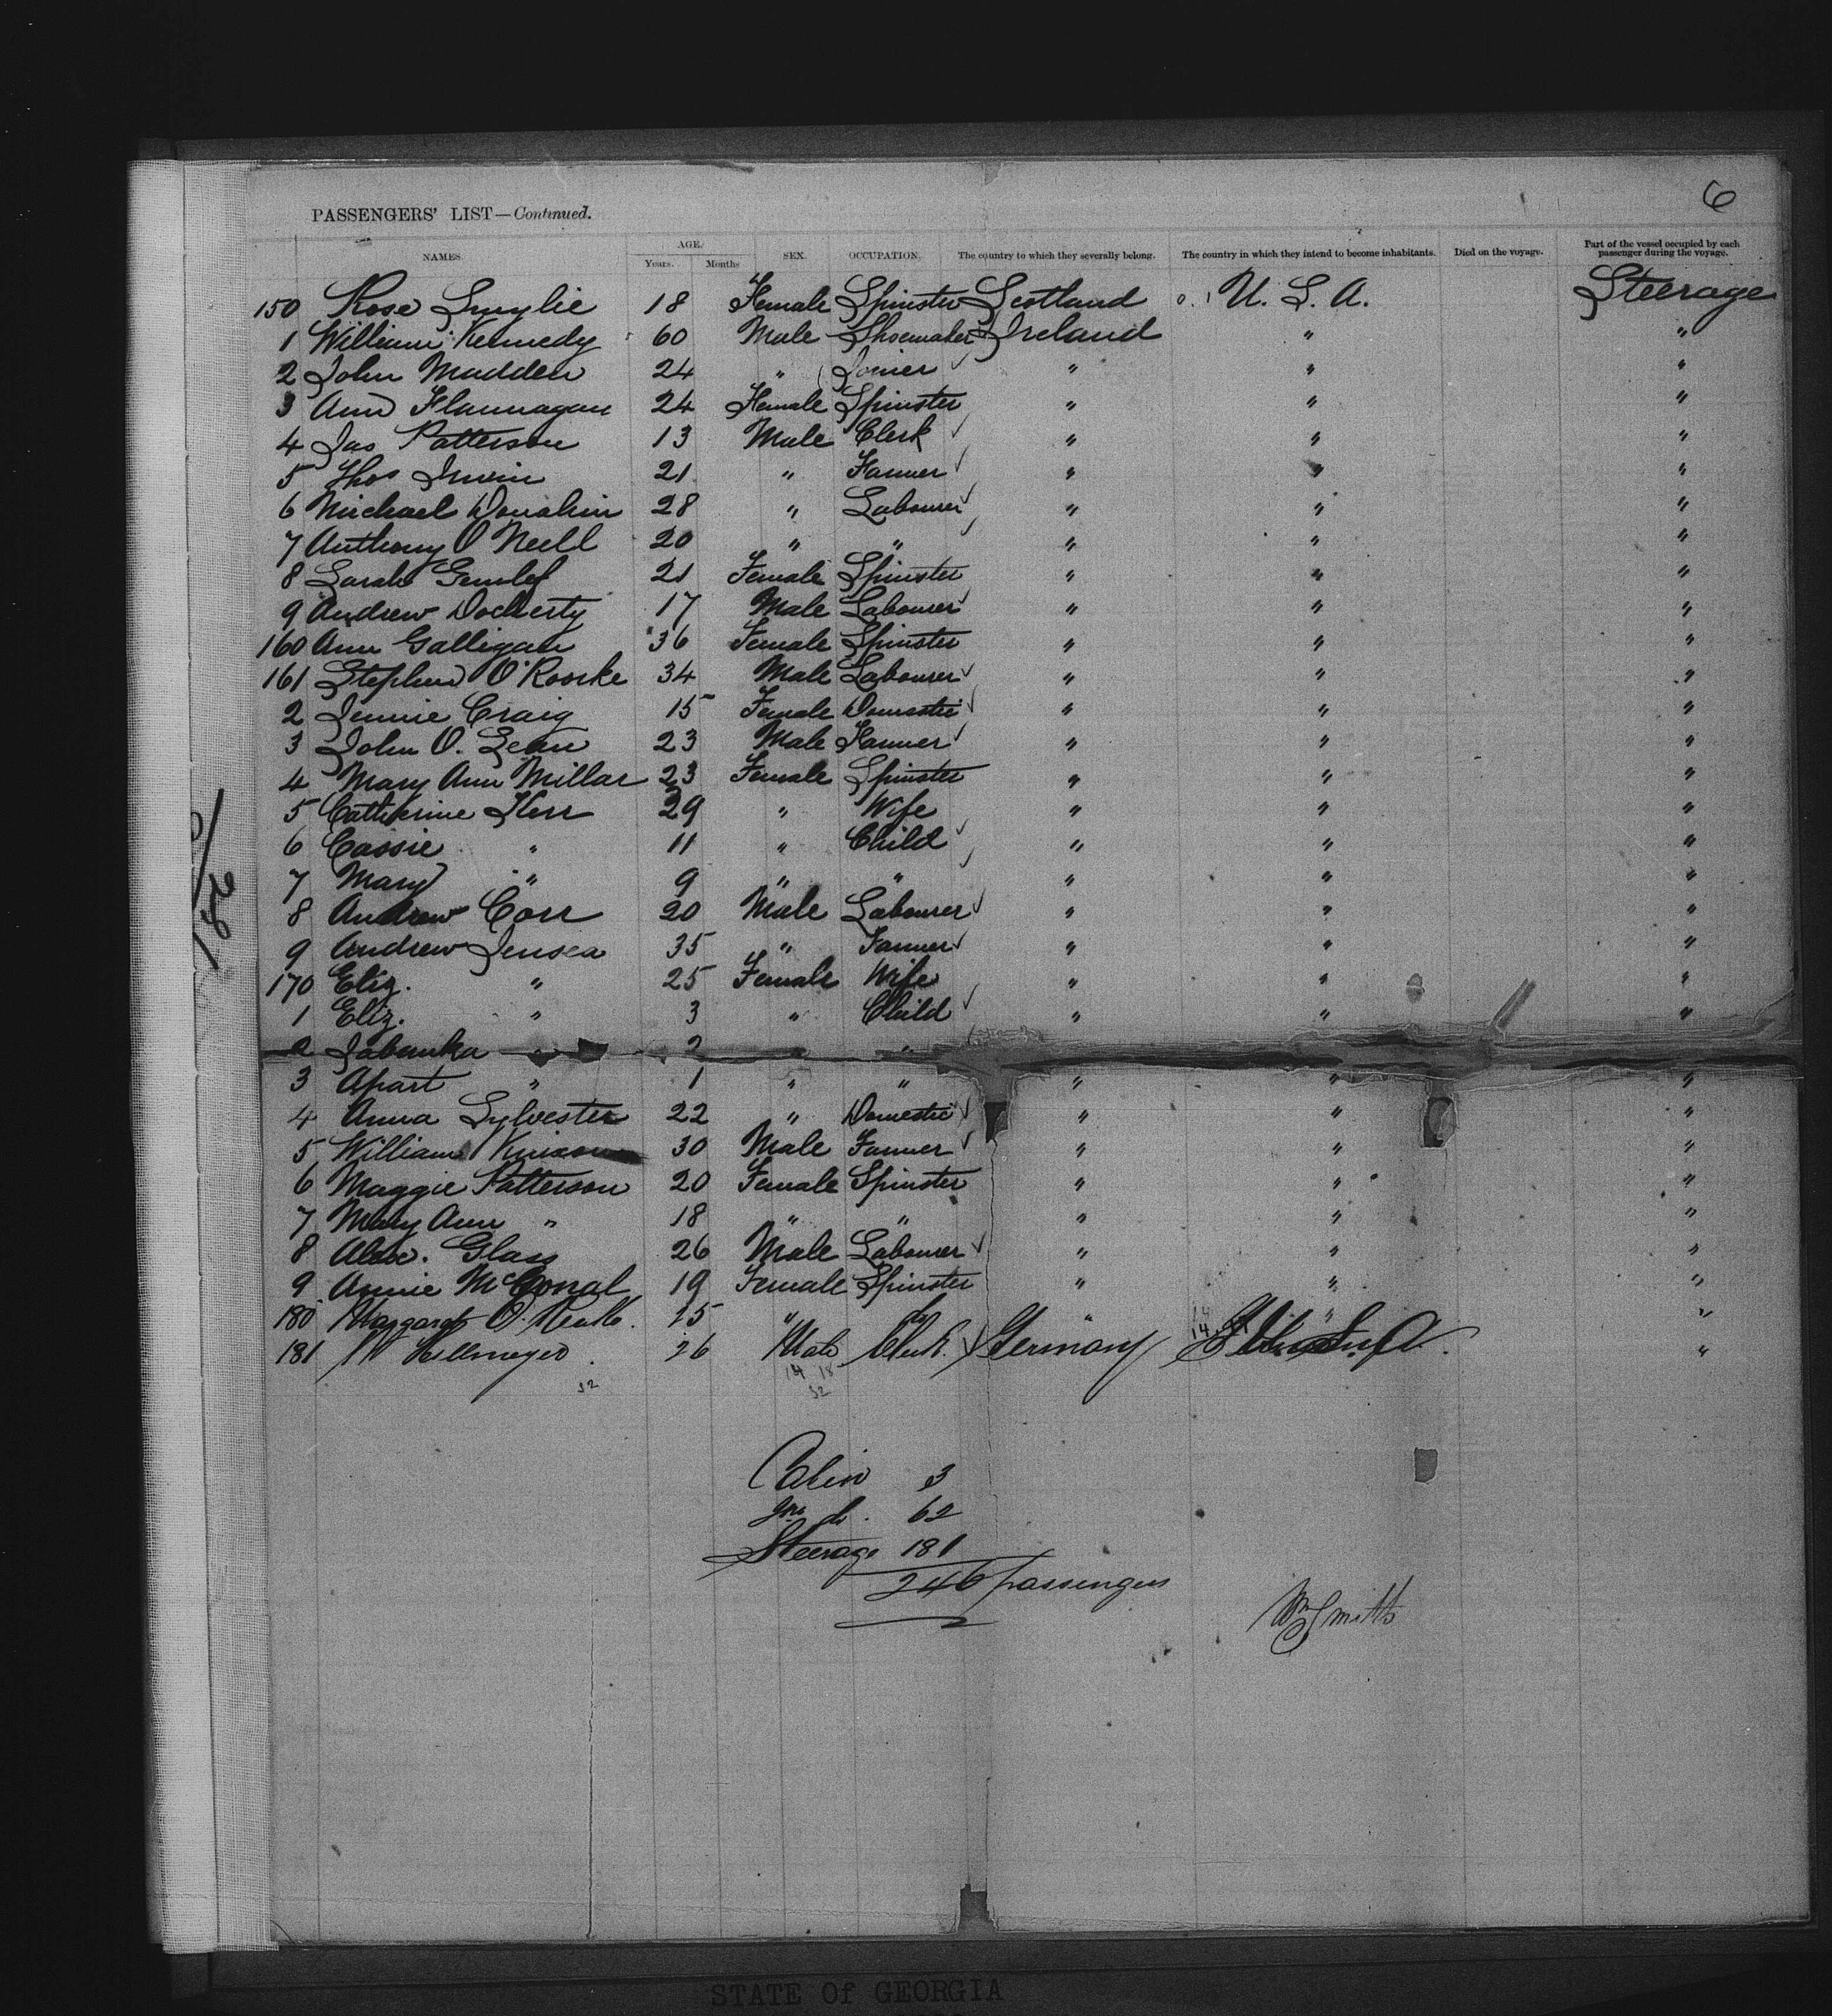 6
PASSENGERS' LIST—Continued.
NAMES. AGE. Years. Months SEX. OCCUPATION. The country to which they severally belong. The country in which they intend to become inhabitants. Died on the voyage. Part of the vessel occupied by each passenger during the voyage.
150 Rose Smylie 18 Female Spinster Scotland U. S. A. Steerage
1 William Kennedy 60 Male Shoemaker Ireland " "
2 John Madden 24 " Joiner " " "
3 Ann Flannagan 24 Female Spinster " " "
4 Jas Patterson 13 Male Clerk " " "
5 Thos Irwin 21 " Farmer " " "
6 Michael Donahin 28 " Labourer " " "
7 Anthony O Neill 20 " " " " "
8 Sarah 21 Female Spinster " " "
9 Andrew Docherty 17 Male Labourer " " "
160 Ann Galligan 36 Female Spinster " " "
161 Stephen O'Roorke 34 Male Labourer " " "
2 Jennie Craig 15 Female Domestic " " "
3 John O. 23 Male Farmer " " "
4 Mary Ann Millar 23 Female Spinster " " "
5 Catherine Kerr 29 " Wife " " "
6 Cassie " 11 " Child " " "
7 Mary " 9 " " " " "
8 Andrew Corr 20 Male Labourer " " "
9 Andrew Jensea 35 " Farmer " " "
170 Eliz. " 25 Female Wife " " "
1 Eliz. " 3 " Child " " "
2 " 2 " "
3 Apart " 1 " " " " "
4 Anna Sylvester 22 " Domestic " " "
5 William 30 Male Farmer " " "
6 Maggie Patterson 20 Female Spinster " " "
7 Mary Ann " 18 " " " " "
8 Alex. Glass 26 Male Labourer " " "
9 Annie McGonal 19 Female Spinster " " "
180 Margaret O. 25 " do " " "
181 26 Male Clerk Germany "
32 14 18
32
Cabin 3
do. 62
Steerage 181
246 passengers
Wm Smith
182
STATE Of GEORGIA